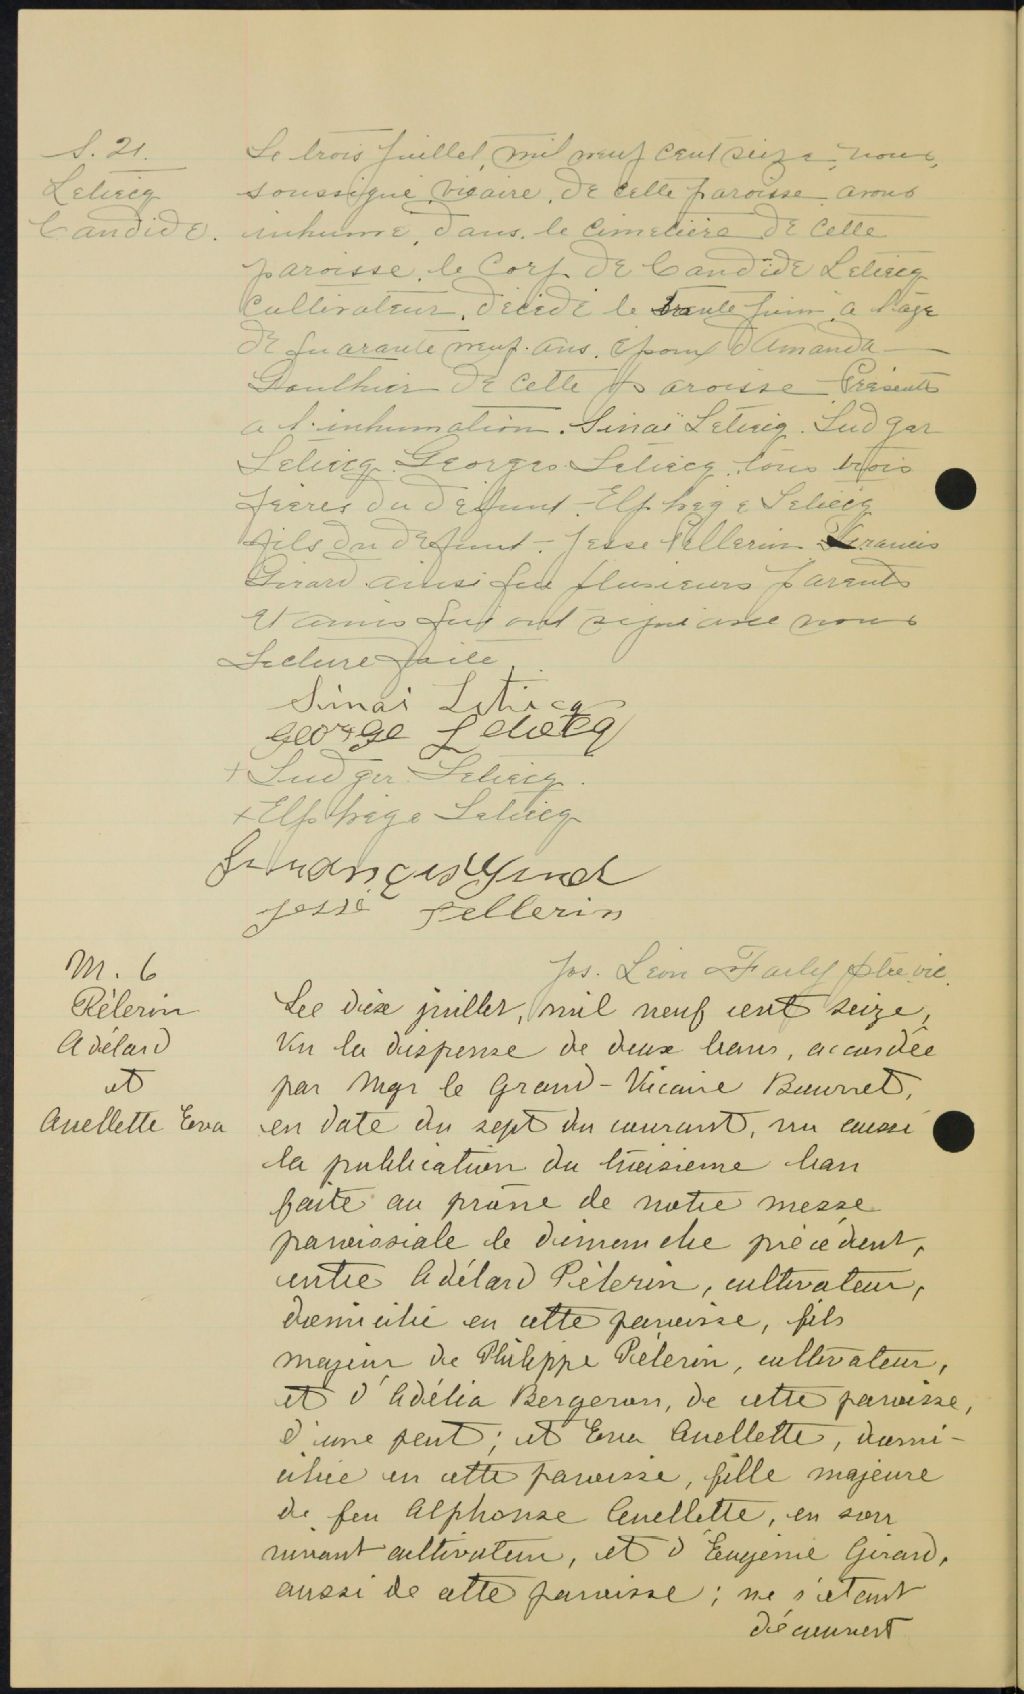 S. 21.
Letiecq
Candide.
Le trois Juillet, mil neuf cent seize, nous,
soussigné, vicaire, de cette paroisse avons
inhumé, dans, le cimetière de cette
paroisse, le Corp. de Candide Letiecq
Cultivateur, décédé le trente juin, a l'âge
de quarante neuf. ans. époux d'Amanda
Gaulthier de cette paroisse Présents
a l'inhumation. Sinaï Letiecq. Ludger
Letiecq. Georges Letiecq, tous trois
frères du défunt - Elphège Letiecq
fils du défunt - Jesse Pellerin Francis
Girard ainsi que plusieurs parents
et amis qui ont signé avec nous
Lecture faite
Sinai Letiecq
George Letiecq
+ Ludger Letiecq.
+ Elphège Letiecq
Jessé Pellerin
Jos. Léon ptre vic.
M. 6
Pélerin
Adélard
et
Ouellette Eva
Lee dix juillet, mil neuf cent seize,
Vu la dispense de deux bans, accordée
par Mgr le Grand-Vicaire
en date du sept du courant, vu aussi
la publication du troisième ban
faite au prône de notre messe
paroissiale le dimanche précédent,
entre Adélard Pélerin, cultivateur,
domicilié en cette paroisse, fils
majeur de Philippe Pélerin, cultivateur,
et d'Adélia Bergeron, de cette paroisse,
d'une part; et Eva Ouellette, domi-
ciliée en cette paroisse, fille majeure
de feu Alphonse Ouellette, en son
vivant cultivateur, et d'Eugénie Girard,
aussi de cette paroisse; ne s'étant
découvert